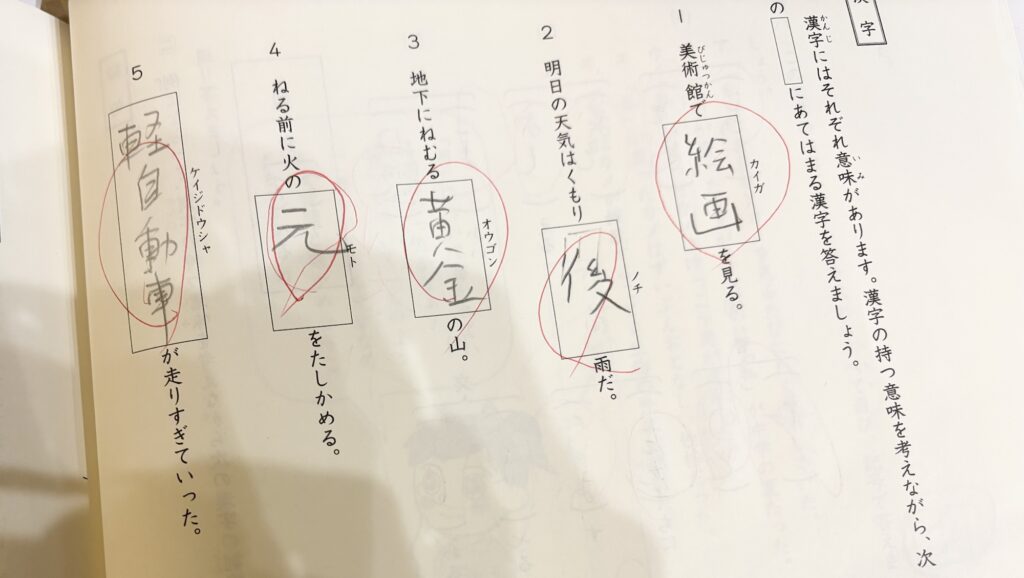 漢字
漢字にはそれぞれ意味があります。漢字の持つ意味を考えながら、次
の　　にあてはまる漢字を答えましょう。
1　美術館で絵画を見る。
2　明日の天気はくもり後雨だ。
3　地下にねむる黄金の山。
4　ねる前に火の元をたしかめる。
5　軽自動車が走りすぎていった。
かんじ
いみ
びじゅつかん
カイガ
ノチ
オウゴン
モト
ケイジドウシャ